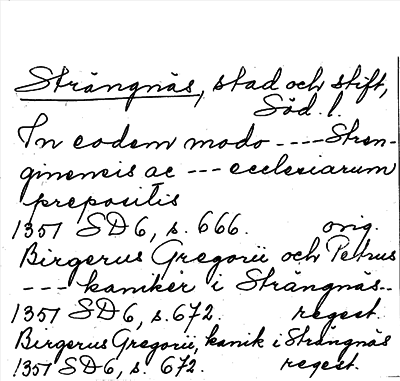 Strängnäs, stad och stift,
Söd. l.
In eodem modo ---- Stren-
ginensis ac --- ecclesiarum
prepositis
1351 SD6, s. 666. orig.
Birgerus Gregorii och Petrus
--- kaniker i Strängnäs..
1351 SD6, s. 672. regest.
Birgerus Gregorii, kanik i Strängnäs
1351 SD6, s. 672. regest.